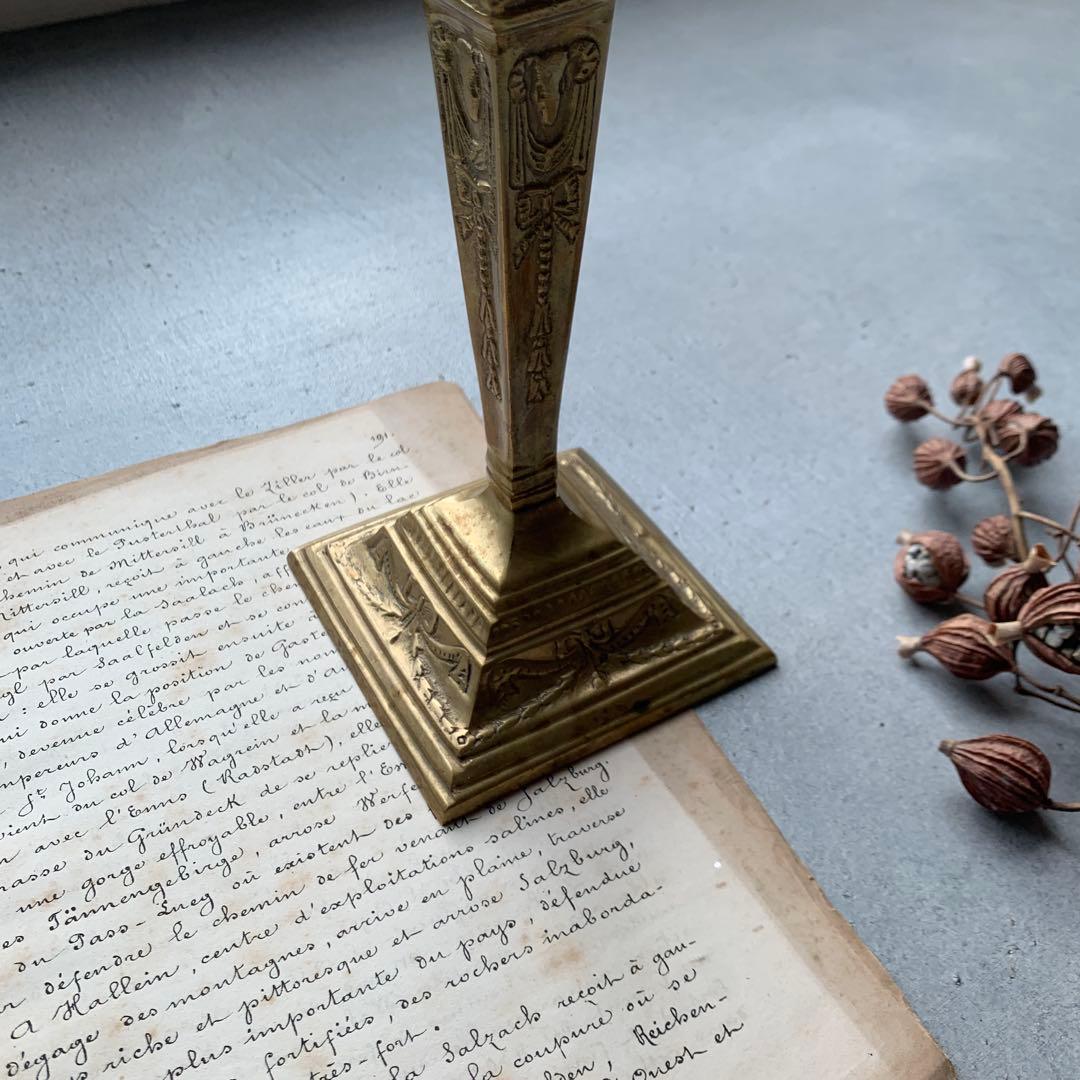 191.
qui communique avec le Ziller par le col
et avec le Pusterthal par le col de Birn-
chemin de Mittersill à Brünecken). Elle
Mittersill, reçoit à gauche les eaux du lac
qui occupe une importante
ouverte par la Saalach, aff
par laquelle passe le chem
par Saalfelden et se con
: elle se grossit ensuite
donne la position de Gast
, devenue célèbre par les nom
empereurs d'Allemagne et d'A
St Johann, lorsqu'elle a reçu
du col de Wagrein et la
avec l'Enns (Radstadt), elle
masse du Gründeck de se replier
une gorge effroyable, entre l'En
Tännengebirge, arrose Werfe
du Pass-Lueg où existent des
défendre le chemin de fer venant de Salzburg.
A Hallein, centre d'exploitations salines, elle
dégage des montagnes, arrive en plaine, traverse
riche et pittoresque et arrose Salzburg,
plus importante du pays, défendue
fortifiées, des rochers inaborda-
très-fort.
la Salzach reçoit à gau-
la coupure où se
lden, Reichen-
Ouest et